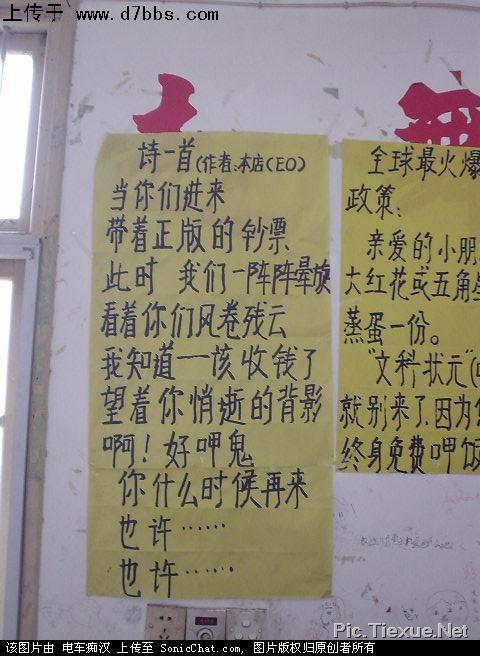 上传于 www.d7bbs.com
诗一首(作者:本店CEO)
当你们进来
带着正版的钞票
此时 我们一阵阵晕旋
看着你们风卷残云
我知道一该收钱了
望着你悄逝的背影
啊！好呷鬼
你什么时候再来
也许……
也许……
全球最火爆
政策：
亲爱的小朋
大红花或五角星
蒸蛋一份。
"文科状元"(
就别来了,因为
终身免费呷饭
Pic.Tiexue.Net
该图片由 电车痴汉 上传至 SonicChat.com, 图片版权归原创者所有